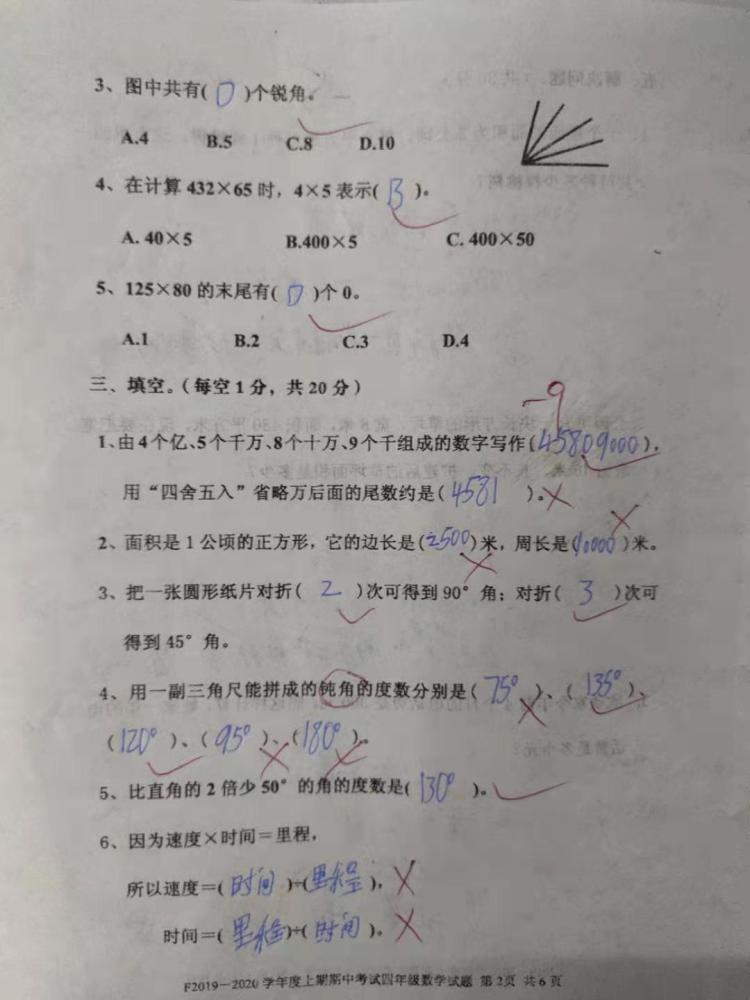 3、图中共有( D )个锐角。
A.4 B.5 C.8 D.10
4、在计算 432×65 时，4×5 表示( B )。
A. 40×5 B.400×5 C. 400×50
5、125×80 的末尾有( D )个 0。
A.1 B.2 C.3 D.4
三、填空。（每空 1 分，共 20 分）
-9
1、由 4 个亿、5 个千万、8 个十万、9 个千组成的数字写作(45809000)，
用“四舍五入”省略万后面的尾数约是( 4581 )。
2、面积是 1 公顷的正方形，它的边长是(2500)米，周长是(10000)米。
3、把一张圆形纸片对折( 2 )次可得到 90° 角；对折( 3 )次可
得到 45° 角。
4、用一副三角尺能拼成的钝角的度数分别是( 75° )、( 135° )、
( 120° )、( 95° )、( 180° )。
5、比直角的 2 倍少 50° 的角的度数是( 130° )。
6、因为速度×时间＝里程，
所以速度＝( 时间 )÷(里程 )，
时间＝( 里程)÷( 时间 )。
F2019－2020 学年度上期期中考试四年级数学试题 第 2页 共 6 页